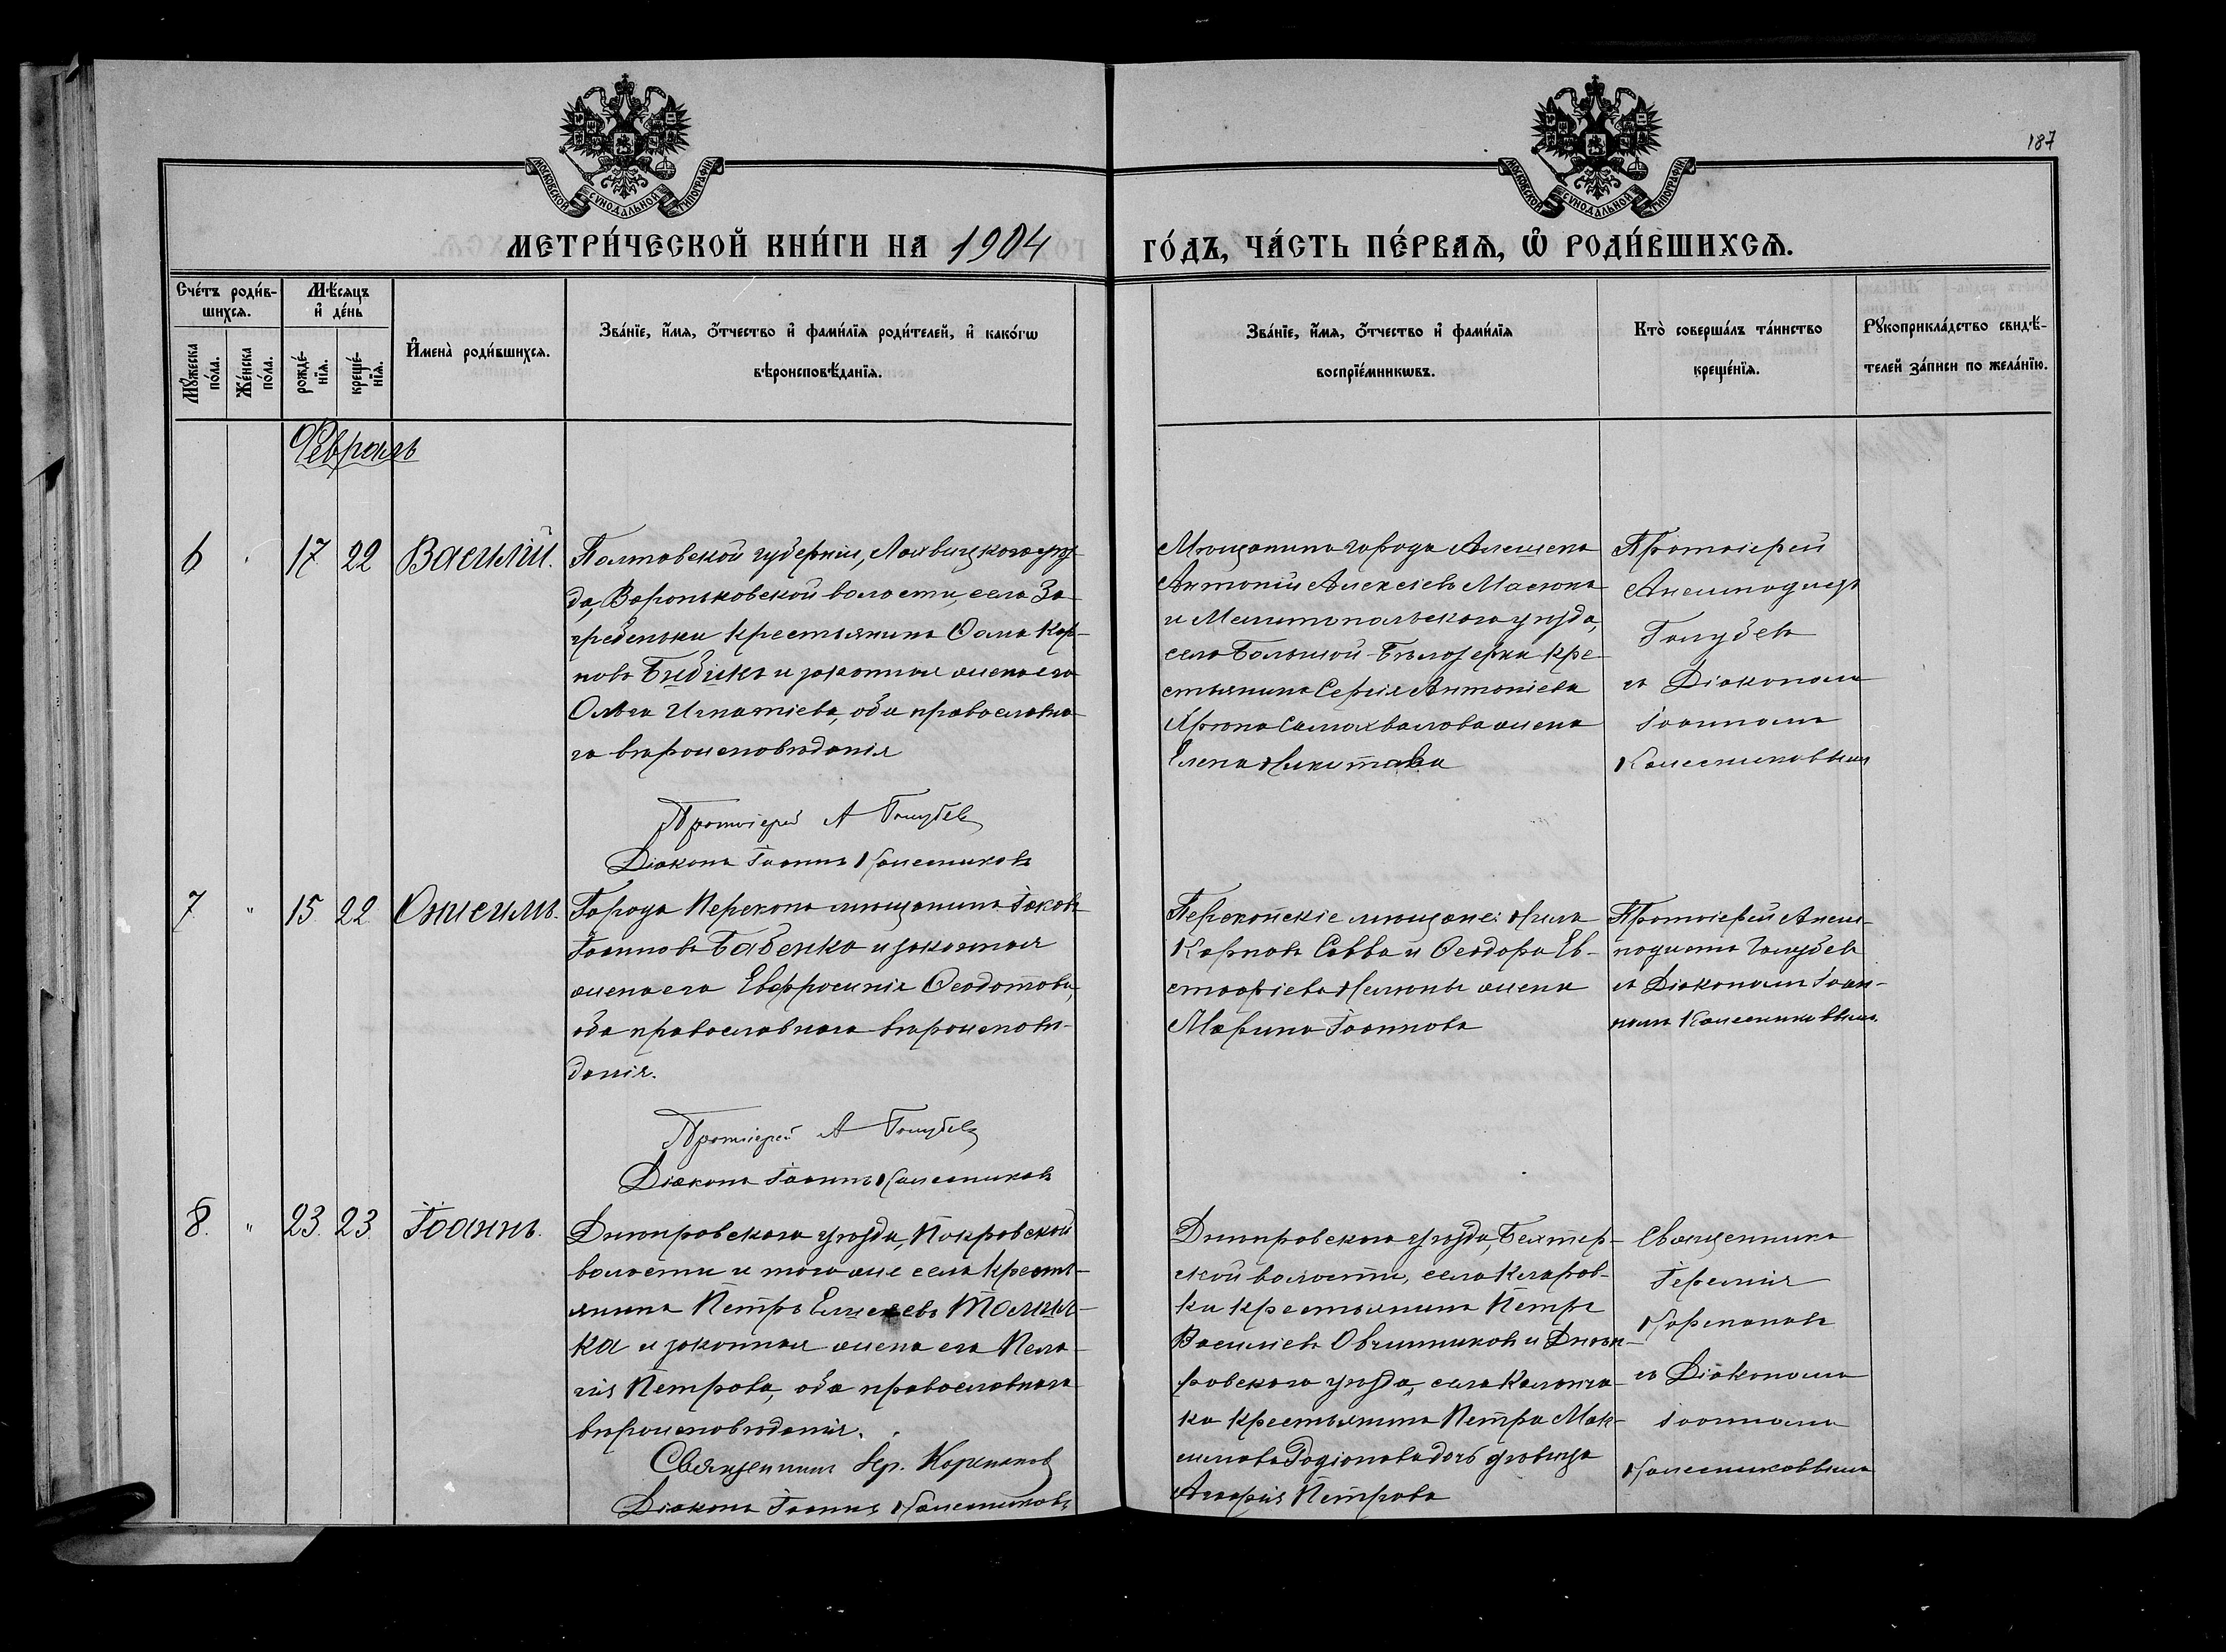 187
МОСКОВСКОЙ СѴНОДАЛЬНОЙ ТИПОГРАФІИ
МОСКОВСКОЙ СѴНОДАЛЬНОЙ ТИПОГРАФІИ
МЕТРИ́ЧЕСКОЙ КНИ́ГИ НА 1904
ГО́ДЪ, ЧА́СТЬ ПЕ́РВАѦ, Ѡ҆ РОДИ́ВШИХСѦ.
Сче́тъ роди́в-
шихсѧ.
Мѣ́сѧцъ
и҆ де́нь
Мꙋ́жеска
по́ла.
Же́нска
по́ла.
рожде́-
нїѧ.
креще́-
нїѧ.
И҆мена̀ роди́вшихсѧ.
Зва́нїе, и҆́мѧ, ѻ҆́тчество и҆ фами́лїѧ роди́телей, и҆ како́гѡ
вѣроисповѣ́данїѧ.
Зва́нїе, и҆́мѧ, ѻ҆́тчество и҆ фами́лїѧ
воспрїе́мникѡвъ.
Кто̀ соверша́лъ та́инство
креще́нїѧ.
Рꙋкоприкла́дство свидѣ́-
телей за́писи по жела́нїю.
Февраль
6 17 22 Василій.
Полтовской губерніи, Лохвицкого уѣз-
да, Вороньковской волости, села За-
гребельки крестьянинъ Сама Кар-
повъ Бибикъ и законная жена его
Ольга Игнатіева, оба православна-
го вѣроисповѣданія
Протоіерей А Голубев
Діаконъ Іоаннъ Колесниковъ
Мѣщанинъ города Алешекъ
Антоній Алексіевъ Масюкъ
и Мелитопольского уѣзда,
села Большой-Бѣлозерки кре-
стьянина Сергія Антоніева
Самохвалова жена
Елена Никитова
Протоіерей
Анемподистъ
Голубевъ
съ Діакономъ
Іоанномъ
Колесниковымъ
7 " 15 22 Онисимъ.
Города Перекопа мѣщанинъ Іаковъ
Іоанновъ Бабенко и законная
жена его Евфросинія Ѳеодотова,
оба православнаго вѣроисповѣ-
данія.
Протоіерей А Голубев
Діаконъ Іоаннъ Колесниковъ
Перекопскіе мѣщане: Нилъ
Карповъ Савва и Ѳеодора Ев-
стафіева жена
Марина Іоаннова
Протоіерей Анем-
подистъ Голубевъ
съ Діакономъ Іоан-
номъ Колесниковымъ.
8. " 23. 23. Іоаннъ.
Днѣпровского уѣзда, Покровской
волости и того же села кресть-
янинъ Петръ Елисеевъ Томил-
ка и законная жена его Пела-
гія Петрова, оба православнаго
вѣроисповѣданія.
Священникъ Іер. Корепанов
Діаконъ Іоаннъ Колесниковъ
Днѣпровского уѣзда, Бехтер-
ской волости, села Кларов-
ки крестьянинъ Петръ
Василіевъ Овчинниковъ и Днѣп-
ровского уѣзда, села Каланча-
ка крестьянина Петра Мак-
симова Родіонова дочь дѣвица
Агафія Петрова
Священникъ
Іеремія
Корепановъ
съ Діакономъ
Іоанномъ
Колесниковымъ